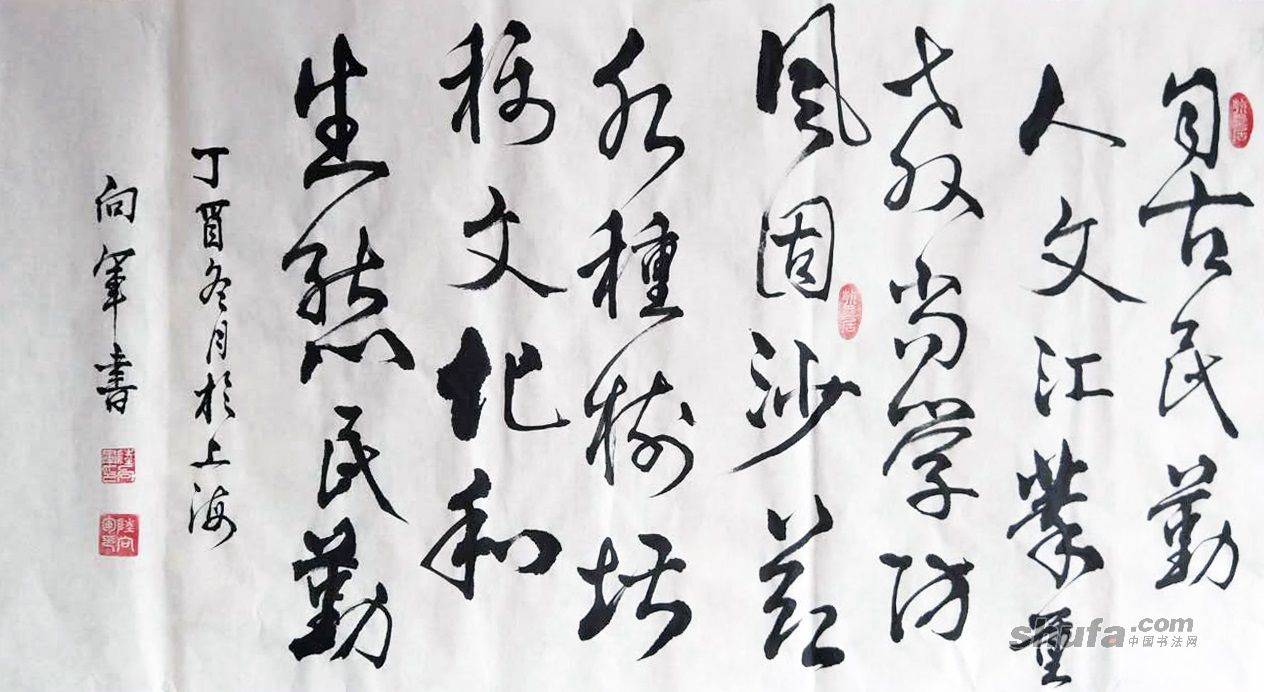 自古民勤
人文江業重
教尚学防
風固沙節
水種樹堪
稱文化和
生態民勤
丁酉冬月於上海
向軍書
shufa.com
中国书法网